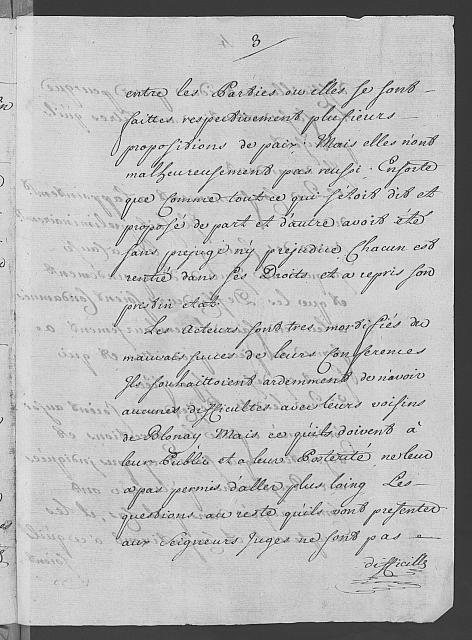 3
entre les Parties ou elles se sont
faittes respectivement plusieurs
propositions de paix. Mais elles n'ont
malheureusement pas reussi. Ensorte
que Comme tout ce qui s'étoit dit et
proposé de part et d'autre avoit été
sans prejugé n'y prejudice. Chacun est
rentré dans ses Droits et a repris son
prestin etat.
Les Acteurs sont tres mortifiés du
mauvais succes de leurs Conferences
Ils souhaittoient ardemment de n'avoir
aucunes difficultes avec leurs voisins
de Blonay. Mais ce qu'ils doivent à
leur Public et a leur Posterité ne leur
a pas permis d'aller plus loing Les
questions au reste qu'ils vont presenter
aux Seigneurs Juges ne sont pas
difficilles